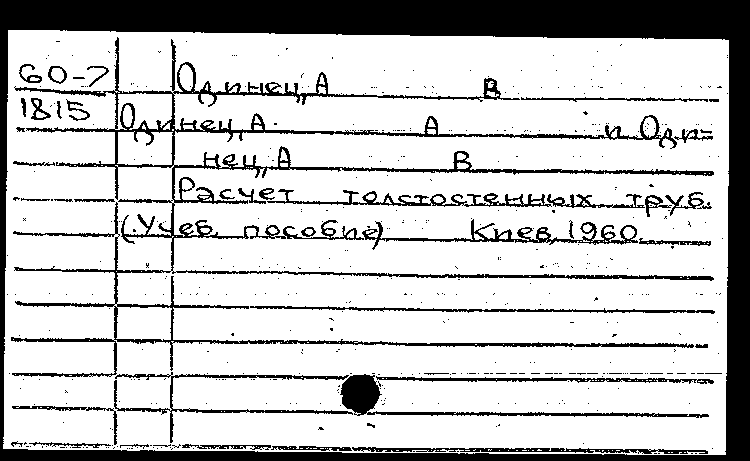 60-7 Одинец, А В
1815 Одинец, А. А и Оди=
нец, А В
Расчет толстостенных труб.
(Учеб. пособие) Киев, 1960.